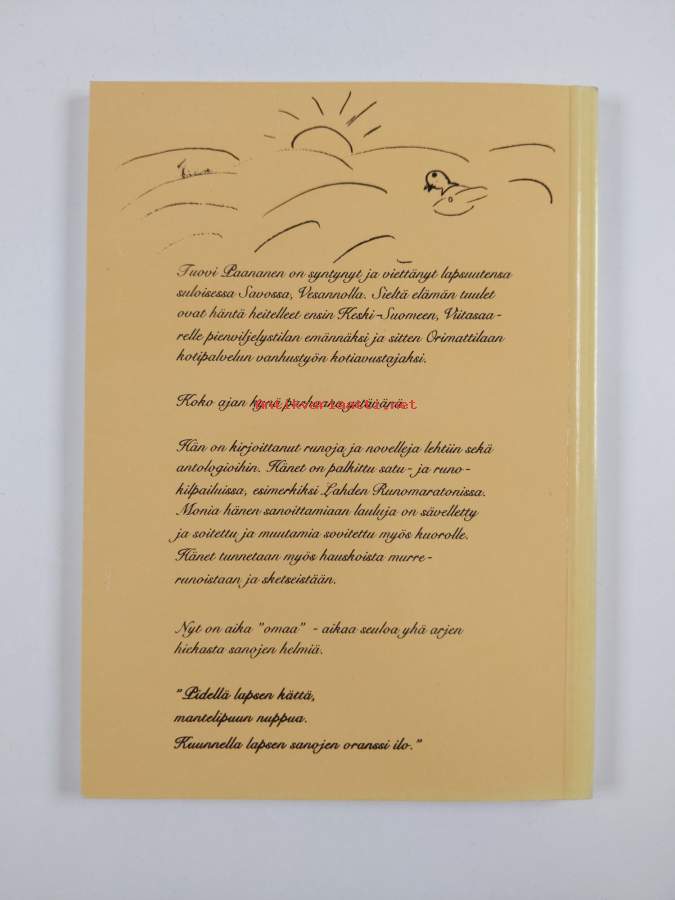 Tuovi Paananen on syntynyt ja viettänyt lapsuutensa
suloisessa Savossa, Vesannolla. Sieltä elämän tuulet
ovat häntä heitelleet ensin Keski-Suomeen, Viitasaa-
relle pienviljelystilan emännäksi ja sitten Orimattilaan
kotipalvelun vanhustyön kotiavustajaksi.
Koko ajan kynä parhaana ystävänä.
antikvariaatti.net
Hän on kirjoittanut runoja ja novelleja lehtiin sekä
antologioihin. Hänet on palkittu satu- ja runo-
kilpailuissa, esimerkiksi Lahden Runomaratonissa.
Monia hänen sanoittamiaan lauluja on sävelletty
ja soitettu ja muutamia sovitettu myös kuorolle.
Hänet tunnetaan myös hauskoista murre-
runoistaan ja sketseistään.
Nyt on aika "omaa" - aikaa seuloa yhä arjen
hiekasta sanojen helmiä.
"Pidellä lapsen kättä,
mantelipuun nuppua.
Kuunnella lapsen sanojen oranssi ilo."